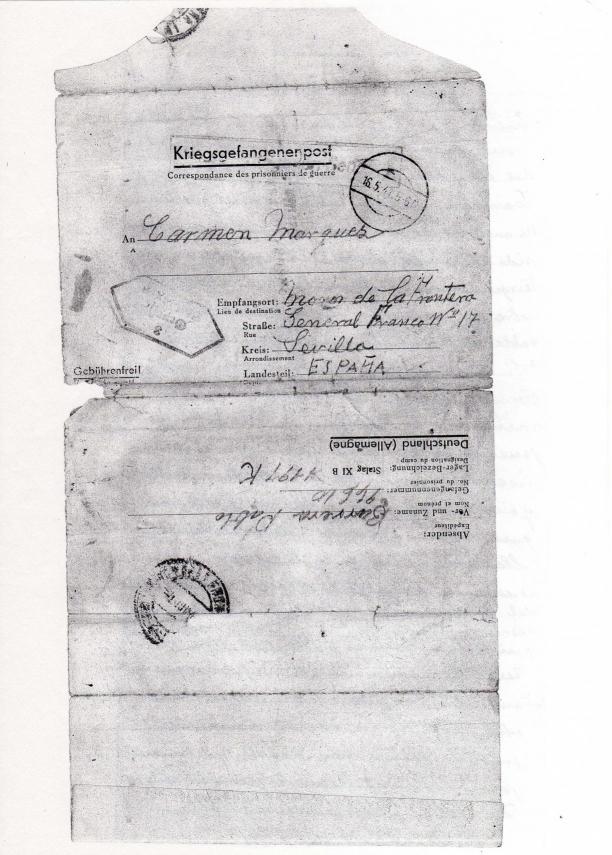 Kriegsgefangenenpost
Correspondance des prisonniers de guerre
16.5.4
An Carmen Marquez
A
Empfangsort: Moron de la Frontera
Lieu de destination
Straße: General Franco Nº 17
Rue
Kreis: Sevilla
Arrondissement
Landesteil: ESPAÑA
Gebührenfrei!
Absender:
Expéditeur
Vor- und Zuname: Barrera Pablo
Nom et prénom
Gefangenennummer:
No. du prisonnier
Lager-Bezeichnung: Stalag XI B
Désignation du camp
Deutschland (Allemagne)